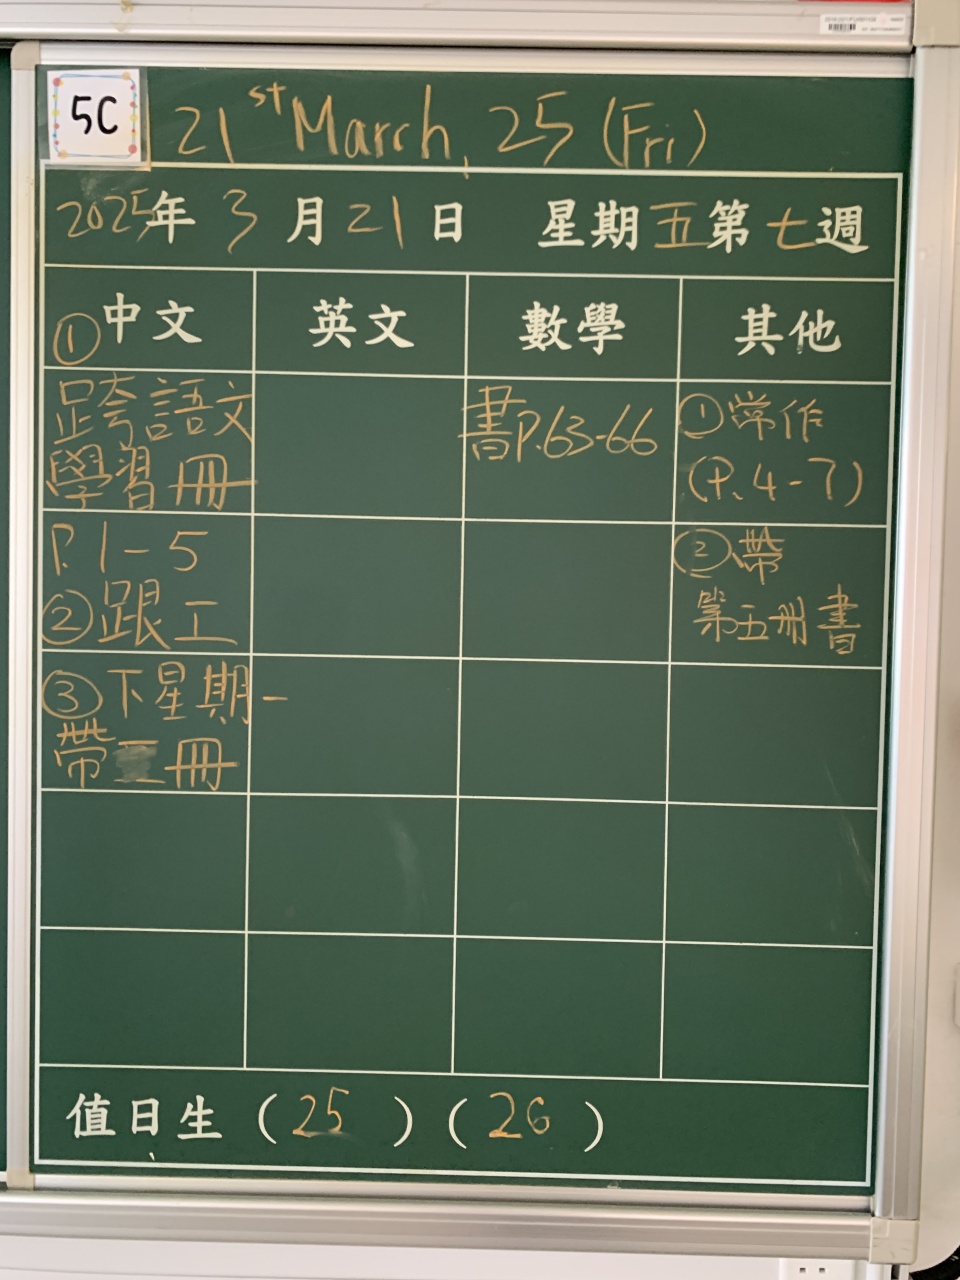 5C
21st March, 25 (Fri)
2025年 3 月 21 日 星期 五 第 七 週
①中文 英文 數學 其他
跨語文
學習冊
P.1-5
②跟工
③下星期一
帶 冊
書P.63-66
①常作
(P.4-7)
②帶
第五冊書
值日生 (25) (26)